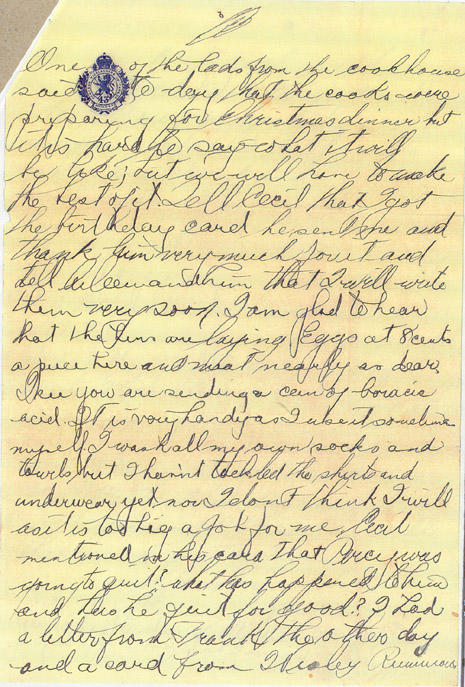 One of the lads from the cookhouse
said to-day that the cooks were
preparing for Christmas dinner but
it is hard he say what it will
be like; but we will have to make
the best of it. Tell Cecil that I got
the birthday card he sent me and
thank him very much for it and
tell and him that I will write
them very soon. I am glad to hear
that the hens are laying Eggs at 8 cents
a piece here and meat nearly as dear.
I see you are sending a can of boracic
acid. It is very handy as I use it sometime
myself. I wash all my own socks and
towels but I hav'nt tackled the shirts and
underwear yet now I don't think I will
as it is to big a job for me. Cecil
mentioned in his card that Percy was
going to quit! what has happened to him
and has he quit for good? I had
a letter from Frank the other day
and a card from
43